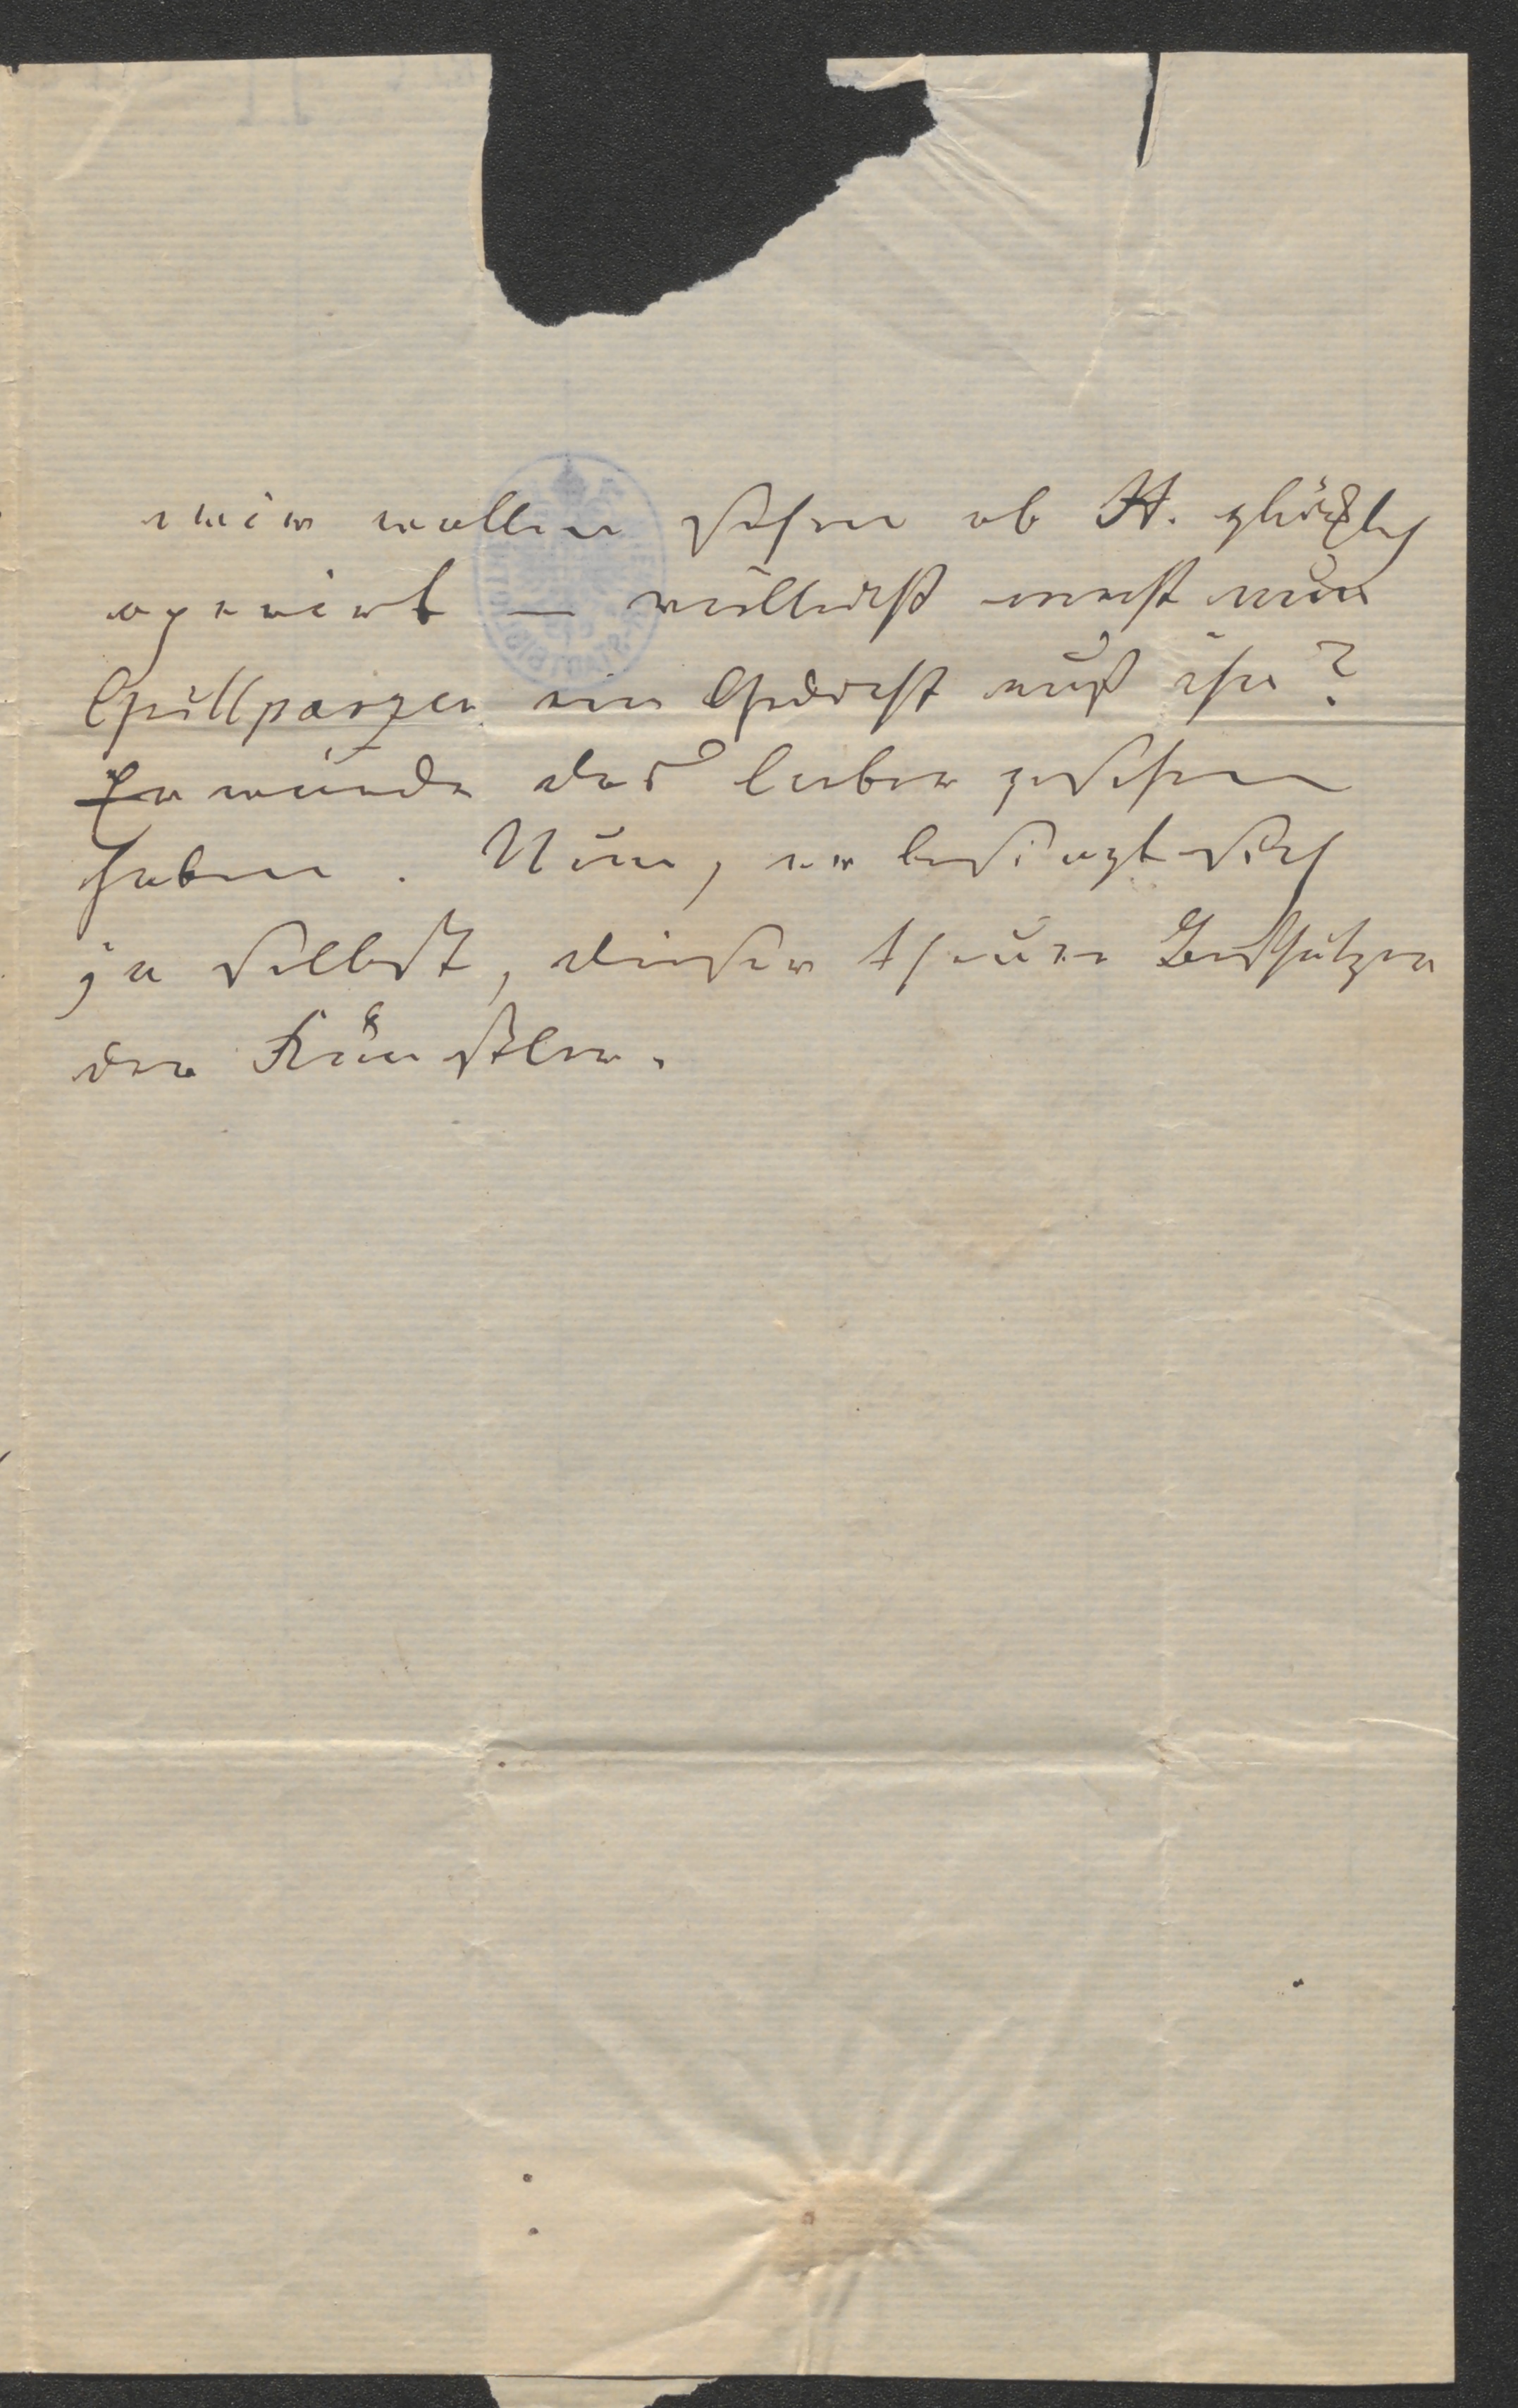 wir wollen sehen ob H. glücklich
operirt — vielleicht macht nun
Grillparzer ein Gedicht auf ihn?
Er würde das lieber gesehen
haben. Nun, er besingt sich
ja selbst, dieser theure Beschützer
der Künstler.